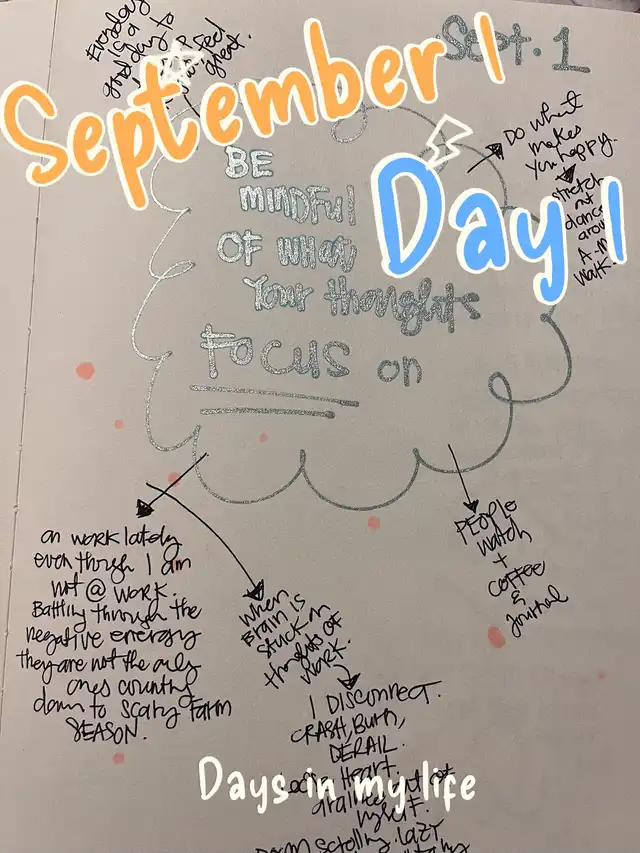 Everyday
is a
good day to
feel
great.
Sept. 1
September 1
Day 1
BE
MINDFUL
OF WHAT
Your thoughts
FOCUS on
DO what
makes
you happy.
stretch
danc
A
walk.
on work lately
even though I am
not @ work.
Battling through the
negative energy
they are not the only
ones counting
down to scary Farm
SEASON.
When
Brain is
stuck on
thoughts of
work.
I DISCONNECT.
CRASH, BURN,
DERAIL.
Heart
PEOPLE
watch
+
coffee
&
journal
Days in my life
scrolling. lazy